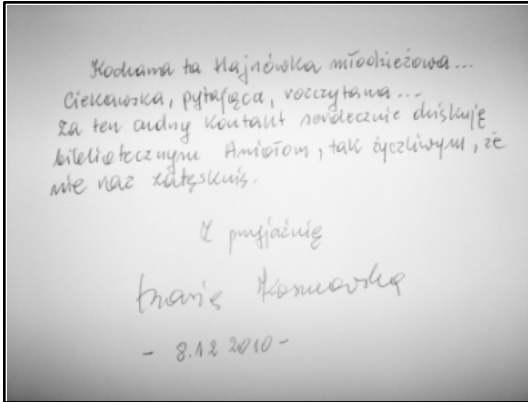 Kochama ta Hajnówka młodzieżowa...
Ciekawska, pytająca, roczytana...
Za ten cudny kontakt serdecznie dziękuję
bibliotecznym Aniołom, tak życzliwym, że
nie raz zatęsknię.
Z przyjaźnią
Kosmowska
- 8.12 2010 -